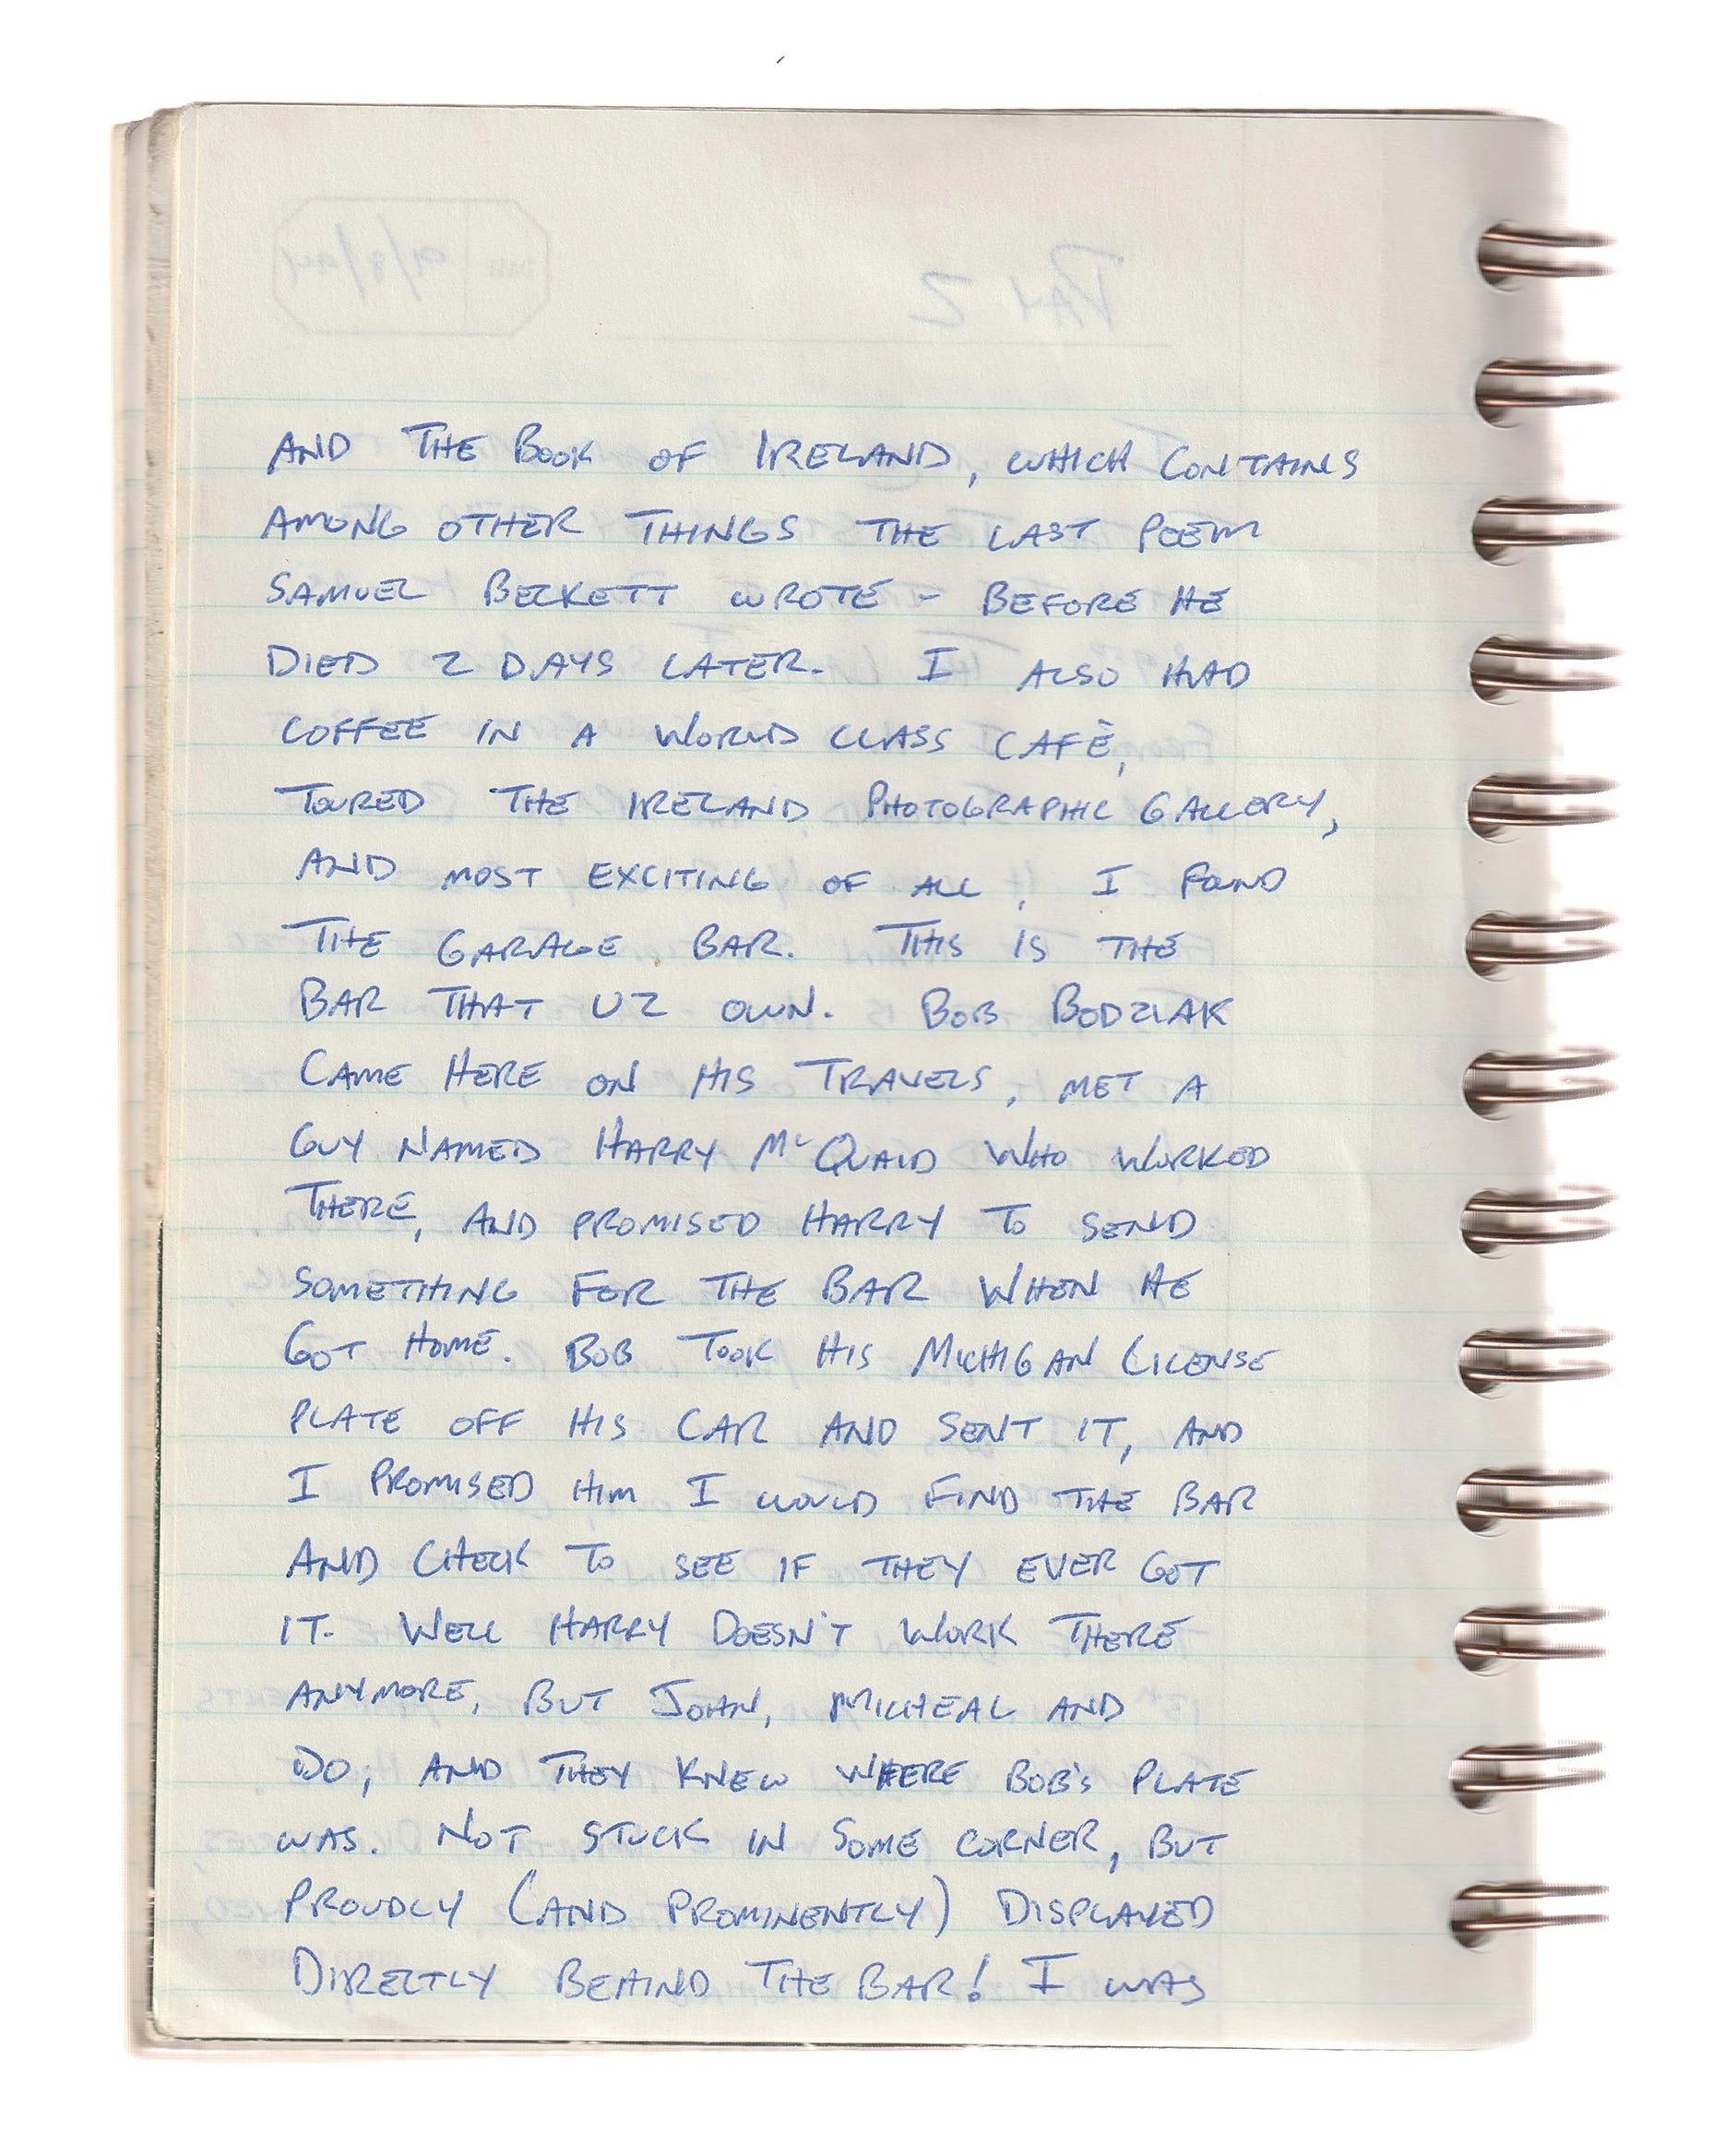 AND THE BOOK OF IRELAND, WHICH CONTAINS
AMONG OTHER THINGS THE LAST POEM
SAMUEL BECKETT WROTE - BEFORE HE
DIED 2 DAYS LATER. I ALSO HAD
COFFEE IN A WORLD CLASS CAFÈ,
TOURED THE IRELAND PHOTOGRAPHIC GALLERY,
AND MOST EXCITING OF ALL, I FOUND
THE GARAGE BAR. THIS IS THE
BAR THAT U2 OWN. BOB BODZIAK
CAME HERE ON HIS TRAVELS, MET A
GUY NAMED HARRY McQUAID WHO WORKED
THERE, AND PROMISED HARRY TO SEND
SOMETHING FOR THE BAR WHEN HE
GOT HOME. BOB TOOK HIS MICHIGAN LICENSE
PLATE OFF HIS CAR AND SENT IT, AND
I PROMISED HIM I WOULD FIND THE BAR
AND CHECK TO SEE IF THEY EVER GOT
IT. WELL HARRY DOESN'T WORK THERE
ANYMORE, BUT JOHN, MICHEAL AND
DO, AND THEY KNEW WHERE BOB'S PLATE
WAS. NOT STUCK IN SOME CORNER, BUT
PROUDLY (AND PROMINENTLY) DISPLAYED
DIRECTLY BEHIND THE BAR! I WAS